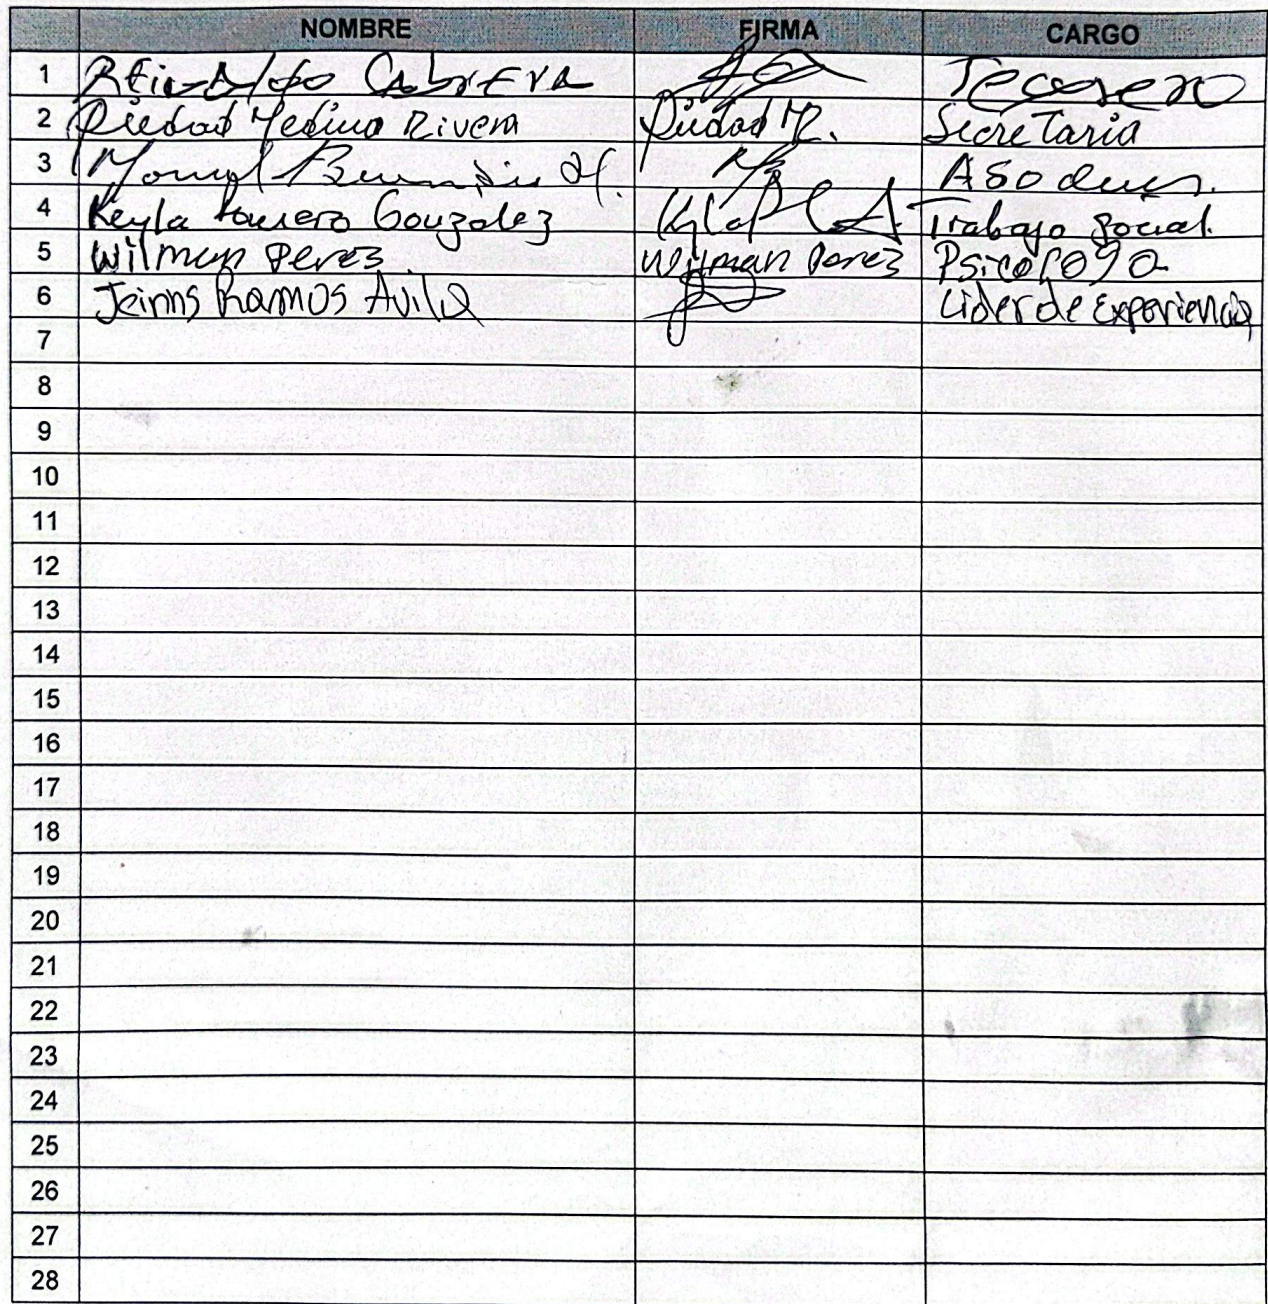 NOMBRE FIRMA CARGO
1 Reinaldo Cabrera Tesorero
2 Piedad Medina Rivera Piedad M. Secretaria
3
4 Keyla Romero González Trabajo Social.
5 Wilman Perez Wilman Perez Psicologo
6 Ramos Avila Lider de Experiencia
7
8
9
10
11
12
13
14
15
16
17
18
19
20
21
22
23
24
25
26
27
28